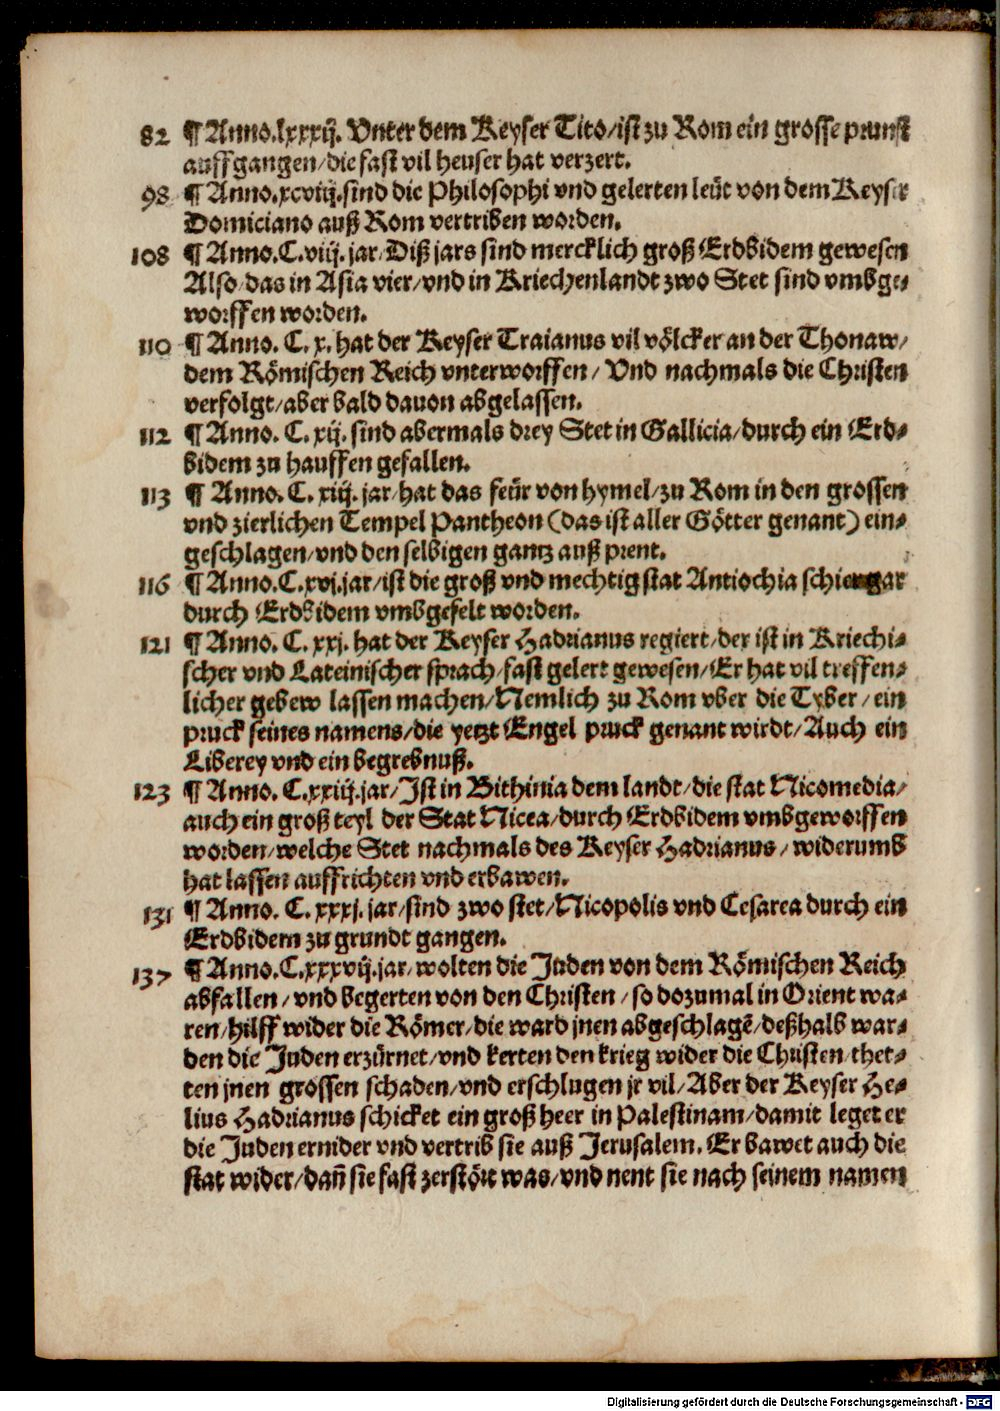 82 ¶ Anno.lxxxij. Vnter dem Keyser Tito/ist zu Rom ein grosse prunst
auffgangen/die fast vil heuser hat verzert.
98 ¶ Anno.xcviij.sind die Philosophi vnd gelerten leüt von dem Keyser
Domiciano auß Rom vertriben worden.
108 ¶ Anno.C.viij.jar/Diß jars sind mercklich groß Erdbidem gewesen
Also/das in Asia vier/vnd in Kriechenlandt zwo Stet sind vmbge-
worffen worden.
110 ¶ Anno. C. x. hat der Keyser Traianus vil völcker an der Thonaw/
dem Römischen Reich vnterworffen/ Vnd nachmals die Christen
verfolgt/aber bald dauon abgelassen.
112 ¶ Anno. C. xij. sind abermals drey Stet in Gallicia/durch ein Erd-
bidem zu hauffen gefallen.
113 ¶ Anno. C. xiij. jar/hat das feür von hymel/zu Rom in den grossen
vnd zierlichen Tempel Pantheon (das ist aller Götter genant) ein-
geschlagen/vnd den selbigen gantz auß prent.
116 ¶ Anno.C.xvj.jar/ist die groß vnd mechtig stat Antiochia schier gar
durch Erdbidem vmbgefelt worden.
121 ¶ Anno. C. xxj. hat der Keyser Hadrianus regiert/der ist in Kriechi-
scher vnd Lateinischer sprach/fast gelert gewesen/Er hat vil treffen-
licher gebew lassen machen/Nemlich zu Rom vber die Tyber/ein
pruck seines namens/die yetzt Engel pruck genant wirdt/Auch ein
Liberey vnd ein begrebnuß.
123 ¶ Anno. C.xxiij.jar/Ist in Bithinia dem landt/die stat Nicomedia/
auch ein groß teyl der Stat Nicea/durch Erdbidem vmbgeworffen
worden/welche Stet nachmals des Keyser Hadrianus/widerumb
hat lassen auffrichten vnd erbawen.
131 ¶ Anno. C. xxxj. jar/sind zwo stet/Nicopolis vnd Cesarea durch ein
Erdbidem zu grundt gangen.
137 ¶ Anno.C.xxxvij.jar/wolten die Juden von dem Römischen Reich
abfallen/vnd begerten von den Christen/so dozumal in Orient wa-
ren/hilff wider die Römer/die ward jnen abgeschlagē/deßhalb war-
den die Juden erzürnet/vnd kerten den krieg wider die Christen/thet-
ten jnen grossen schaden/vnd erschlugen jr vil/Aber der Keyser He-
lius Hadrianus schicket ein groß heer in Palestinam/damit leget er
die Juden ernider vnd vertrib sie auß Jerusalem. Er bawet auch die
stat wider/dañ sie fast zerstört was/vnd nent sie nach seinem namen
Digitalisierung gefördert durch die Deutsche Forschungsgemeinschaft - DFG